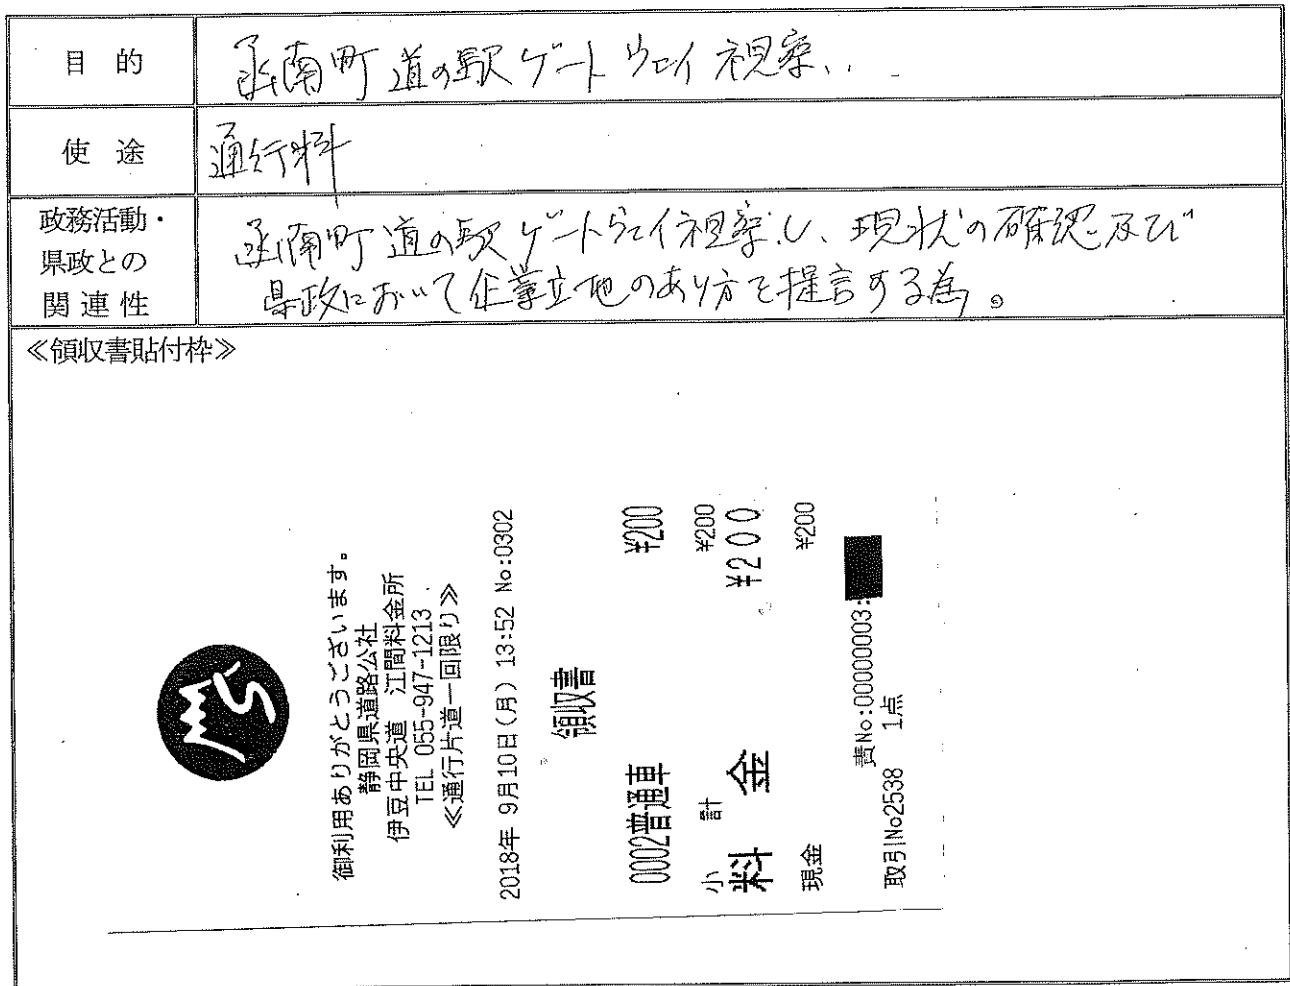 目的
函南町道の駅ゲートウェイ視察
使途
通行料
政務活動・
県政との
関連性
函南町道の駅ゲートウェイ視察し、現状の確認及び
県政において企業立地のあり方を提言する為。
≪領収書貼付枠≫
御利用ありがとうございます。
静岡県道路公社
伊豆中央道 江間料金所
TEL 055-947-1213
≪通行片道一回限り≫
2018年 9月10日(月) 13:52 No:0302
領収書
0002普通車 ¥200
小計 ¥200
料金 ¥200
現金 ¥200
責No:00000003:
取引No2538 1点